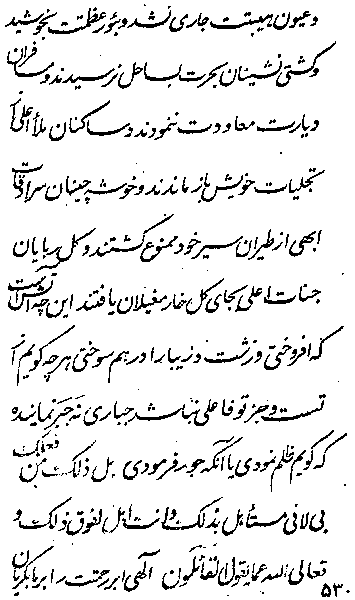 و عیون هیبتت جاری نشد و بئور عظمتت نجوشید
و کشتی نشینان بحرت بساحل نرسیدند و مسافران
دیارت معاودت ننمودند و ساکنان ملأ اعلی از
تجلیات خویش باز ماندند و خوشه چینان سرادقات
ابهی از طیران سیر خود ممنوع گشتند و گل رویان
جنات اعلی بجای گل خار مغیلان یافتند این چه آتش است
که افروختی و زشت و زیبا را در هم سوختی هر چه گویم از
تست و جز تو فاعلی نباشد جباری نه جبر نماینده
که گویم ظلم نمودی یا آنکه جور فرمودی بل ذلک من فعلک
بی لانی مستأهل بذلک و انت اهل لفوق ذلک و
تعالی الله عما یقول القائلون الهی ابر رحمتت را بر باکریان
۵۳۰